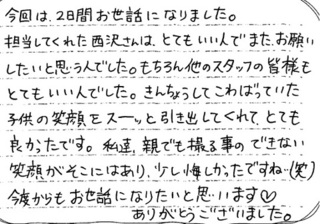 今回は、2日間お世話になりました。
担当してくれた西沢さんは、とてもいい人でまた、お願い
したいと思う人でした。もちろん他のスタッフの皆様も
とてもいい人でした。きんちょうしてこわばっていた
子供の笑顔をスーッと引き出してくれて、とても
良かったです。私達、親でも撮る事のできない
笑顔がそこにはあり、少し悔しかったですね(笑)
今度からもお世話になりたいと思います♡
ありがとうございました。